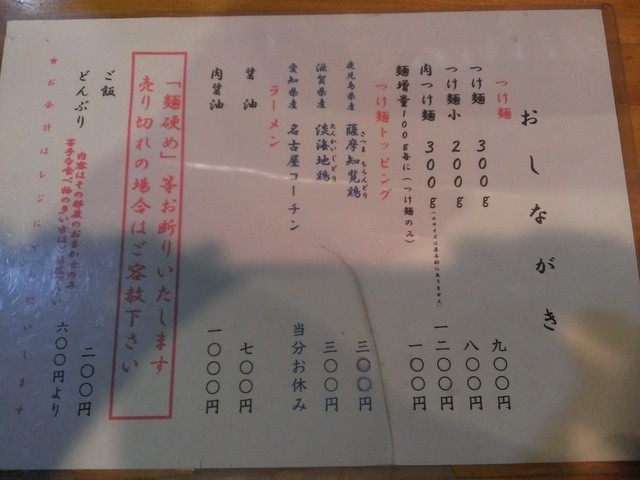 おしながき
つけ麺
つけ麺 300g 九〇〇円
つけ麺小 200g 八〇〇円
肉つけ麺 300g 一二〇〇円
麺増量100g毎に(つけ麺のみ) 一〇〇円
つけ麺トッピング
鹿児島県産 薩摩知覧鶏 三〇〇円
さつま ちらんどり
滋賀県産 淡海地鶏 三〇〇円
たんかいじどり
愛知県産 名古屋コーチン 当分お休み
ラーメン
醤油 七〇〇円
肉醤油 一〇〇〇円
「麺硬め」等お断りいたします
売り切れの場合はご容赦下さい
ご飯 二〇〇円
どんぶり 六〇〇円より
内容はその都度のおまかせのみ
苦手な食べ物の多い方は
★お会計はレジにて
します